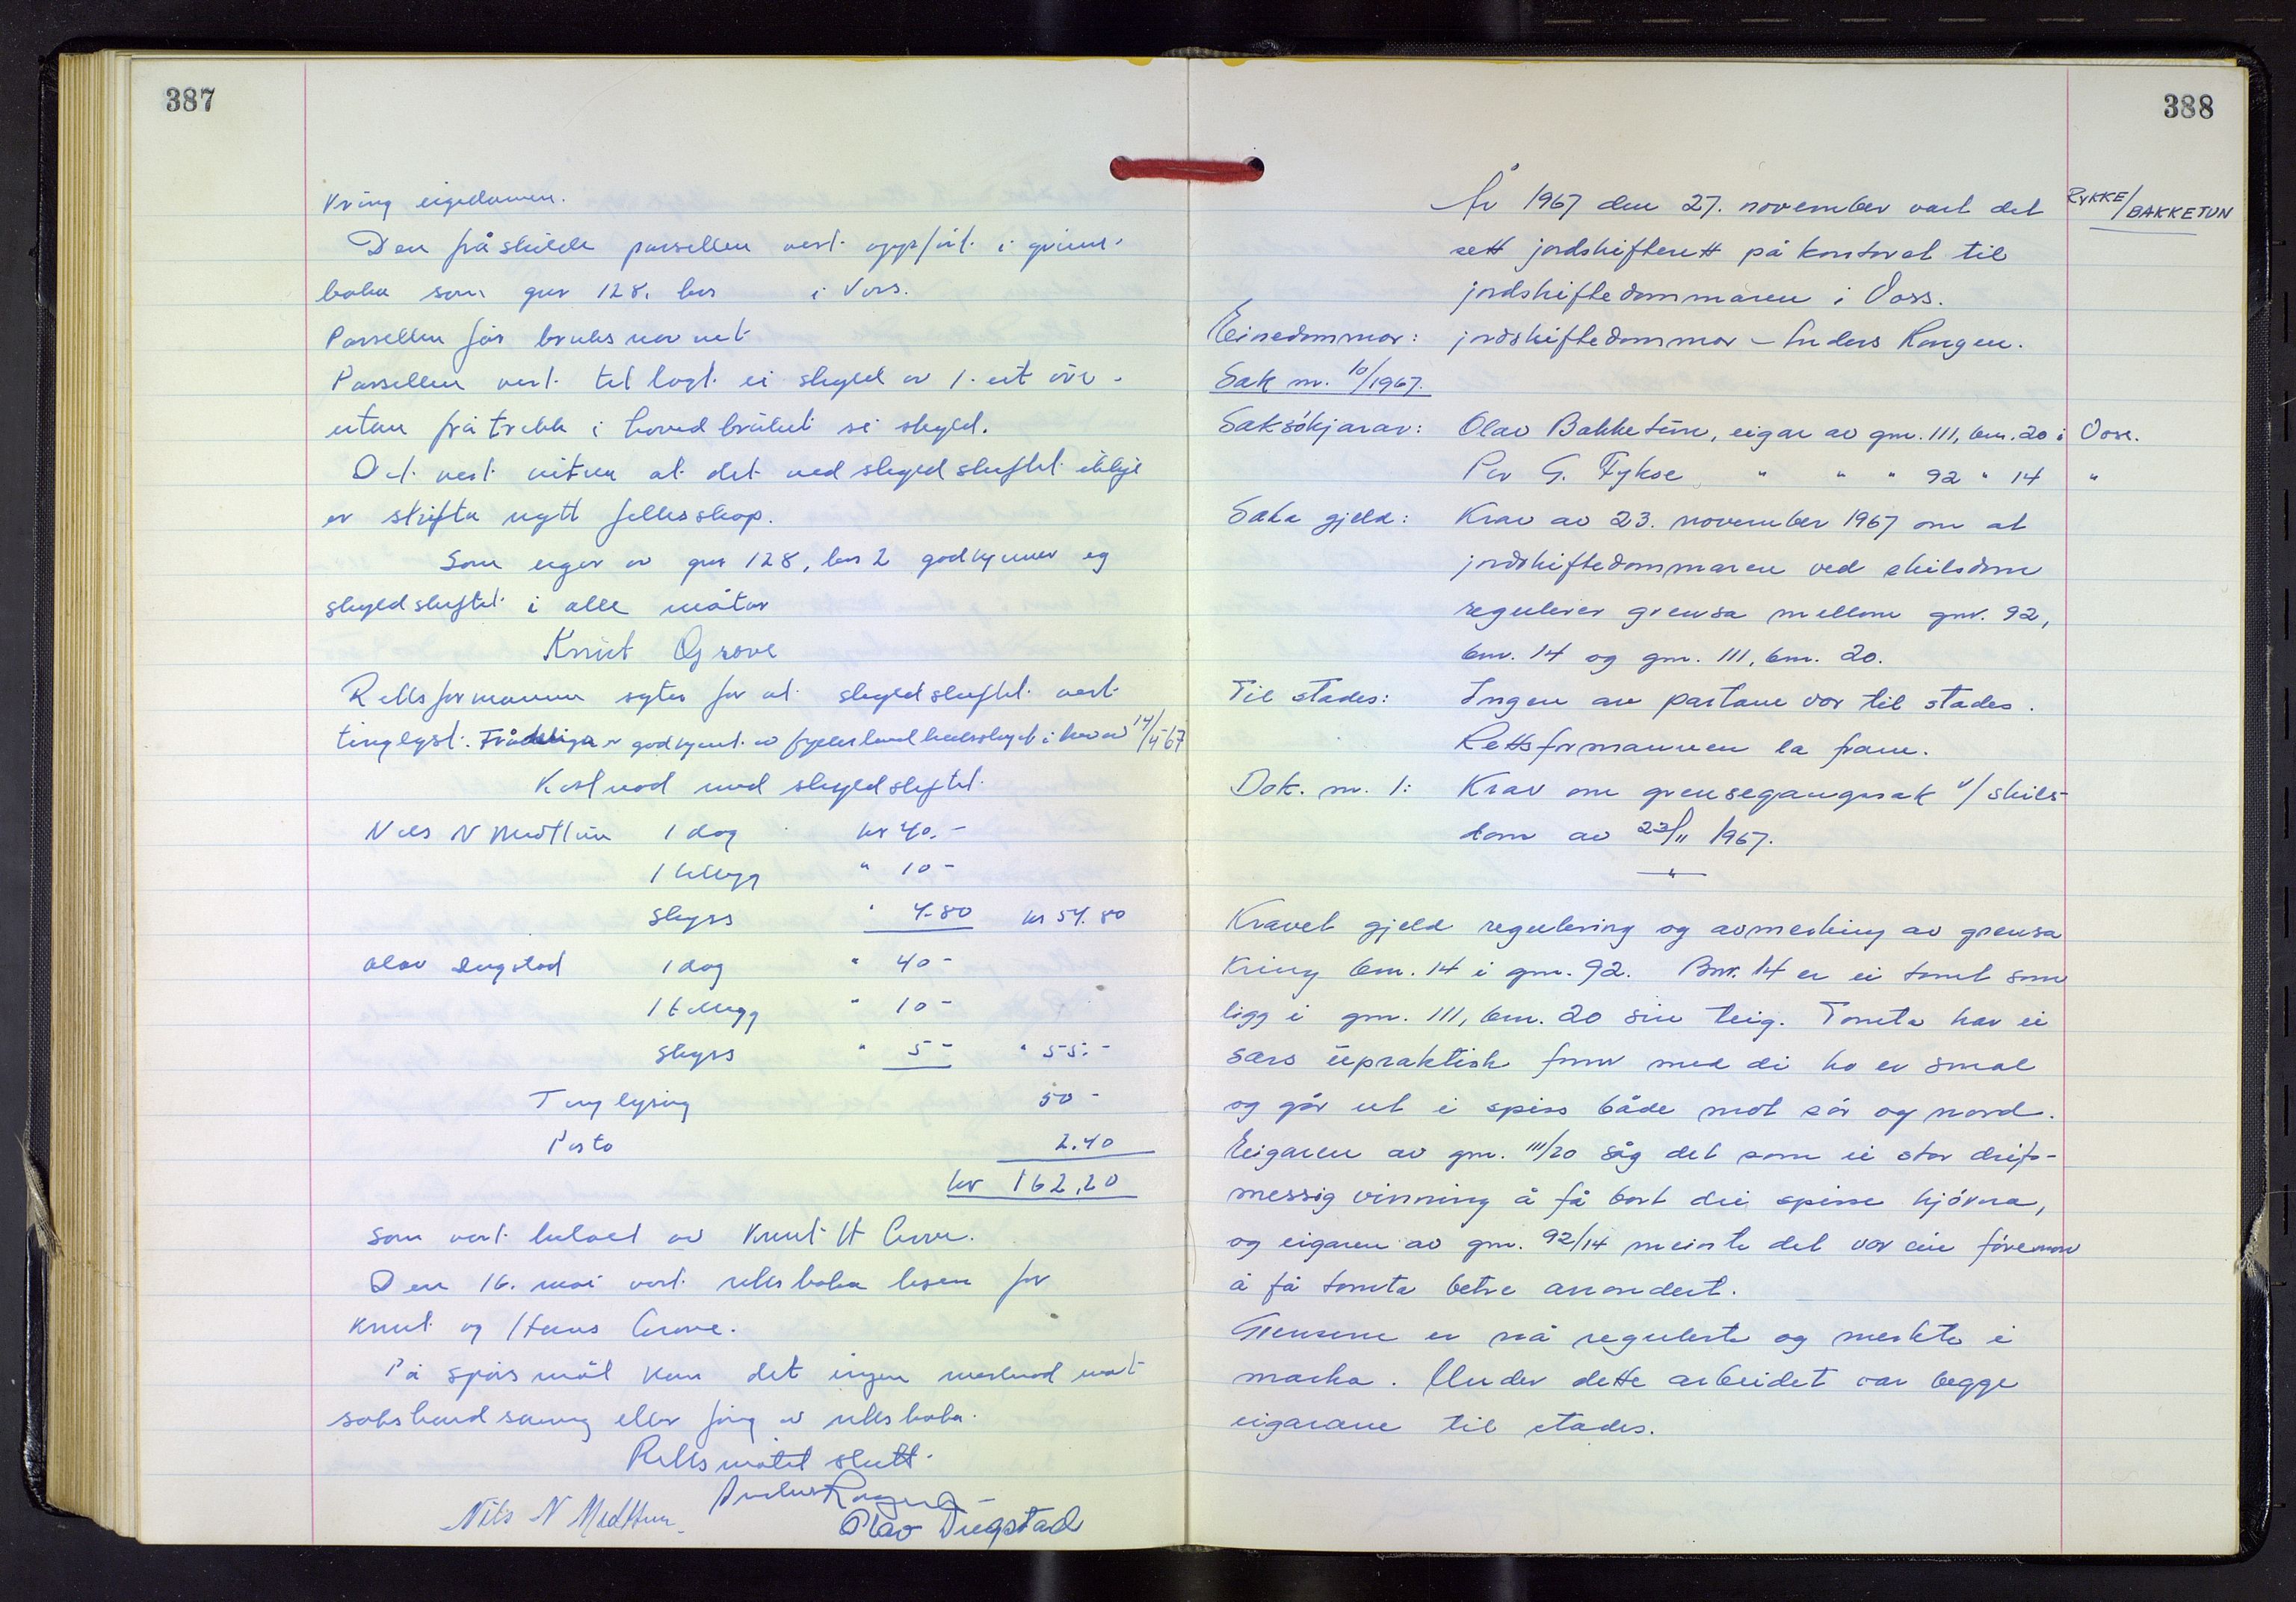 387
kring eigedomen.
Den fråskilde parsellen vert oppført i grunn-
boka som gnr 128, bnr i Voss.
Parsellen får bruksnavnet
Parsellen vert tillagt ei skyld av 1. eit øre -
utan fråtrekk i hovedbruket si skyld.
Det vert vitna at det ved skyldskiftet ikkje
er skifta nytt fellesskap.
Som eigar av gnr 128, bnr 2 godkjenner eg
skyldskiftet i alle måtar
Knut Grove
Rettsformannen syter for at skyldskiftet vert
tinglyst. Frådelinga er godkjent av fylkeslandbruksstyret i brev av 14/4-67
Kostnad med skyldskiftet.
Nils N Medttun 1 dag kr 40.-
1 tillegg " 10-
Skyss " 4-80 kr 54.80
Olav Dugstad 1 dag " 40-
1 tillegg " 10-
Skyss " 5- " 55.-
Tinglysing 50-
Porto 2.40
kr 162,20
som vert betalt av Knut H Grove.
Den 16. mai vert rettsboka lesen for
Knut og Hans Grove.
På spørsmål kom det ingen merknad mot
sakshandsaming eller føring av rettsboka.
Rettsmøtet slutt.
Anders Rongen
Nils N Medttun. Olav Dugstad
388
RYKKE/BAKKETUN
År 1967 den 27. november vart det
sett jordskifterett på kontoret til
jordskiftedommaren i Voss.
Einedommar: jordskiftedommar Anders Rongen.
Sak nr. 10/1967.
Saksökjarar: Olav Bakketun, eigar av gnr. 111, bnr. 20 i Voss.
Per G. Fykse " " " 92 " 14 "
Saka gjeld: Krav av 23. november 1967 om at
jordskiftedommaren ved skilsdom
regulerer grensa mellom gnr. 92,
bnr. 14 og gnr. 111, bnr. 20.
Til stades: Ingen av partane var til stades.
Rettsformannen la fram.
Dok. nr. 1: Krav om grensegangssak v/ skils-
dom av 23/11 1967.
"
Kravet gjeld regulering og avmerking av grensa
kring bnr. 14 i gnr. 92. Bnr. 14 er ei tomt som
ligg i gnr. 111, bnr. 20 sin teig. Tomta har ei
særs upraktisk form med di ho er smal
og går ut i spiss både mot sør og nord.
Eigaren av gnr. 111/20 såg det som ei stor drifts-
messig vinning å få bort dei spisse hjørna,
og eigaren av gnr. 92/14 meinte det var ein føremon
å få tomta betre arrondert.
Grensene er nå regulerte og merkte i
marka. Under dette arbeidet var begge
eigarane til stades.